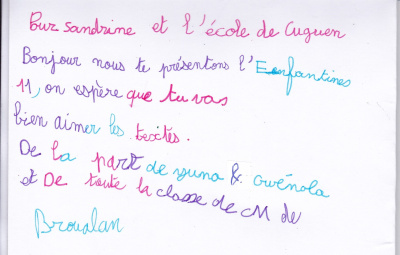 Pour sandrine et l'école de Cuguen
Bonjour nous te présentons l'Enfantines
11, on espère que tu vas
bien aimer les textes.
De la part de yuna & Gwénola
et De toute la classe de CM de
Broualan